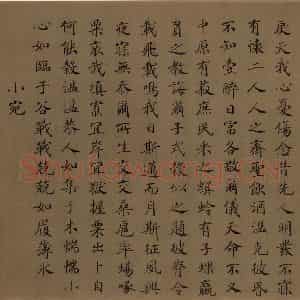 戾天我心憂傷念昔先人明發不寐
有懷二人人之齊聖飲酒溫克彼昬
不知壹醉日富各敬爾儀天命不又
中原有菽庶民采之螟蛉有子蜾蠃
負之教誨爾子式穀似之題彼脊令
載飛載鳴我日斯邁而月斯征夙興
夜寐無忝爾所生交交桑扈率場啄
粟哀我填寡宜岸宜獄握粟出卜自
何能穀溫溫恭人如集于木惴惴小
心如臨于谷戰戰兢兢如履薄冰
小宛